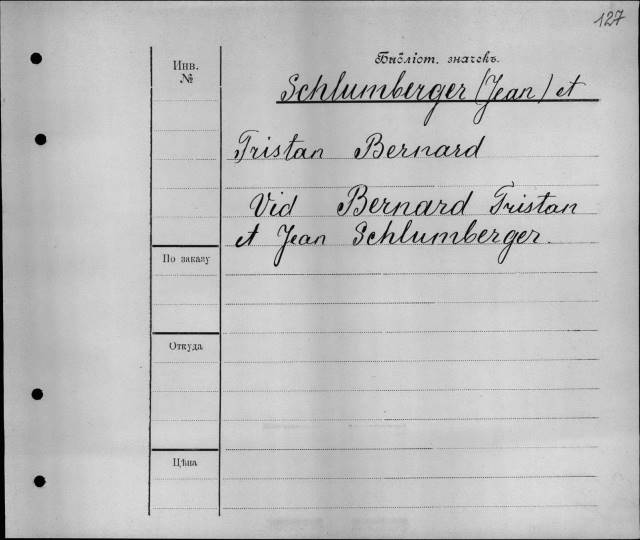 127
Библіот. значекъ.
Инв.
№
Schlumberger (Jean) et
Tristan Bernard
Vid Bernard Tristan
et Jean Schlumberger.
По заказу
Откуда
Цѣна